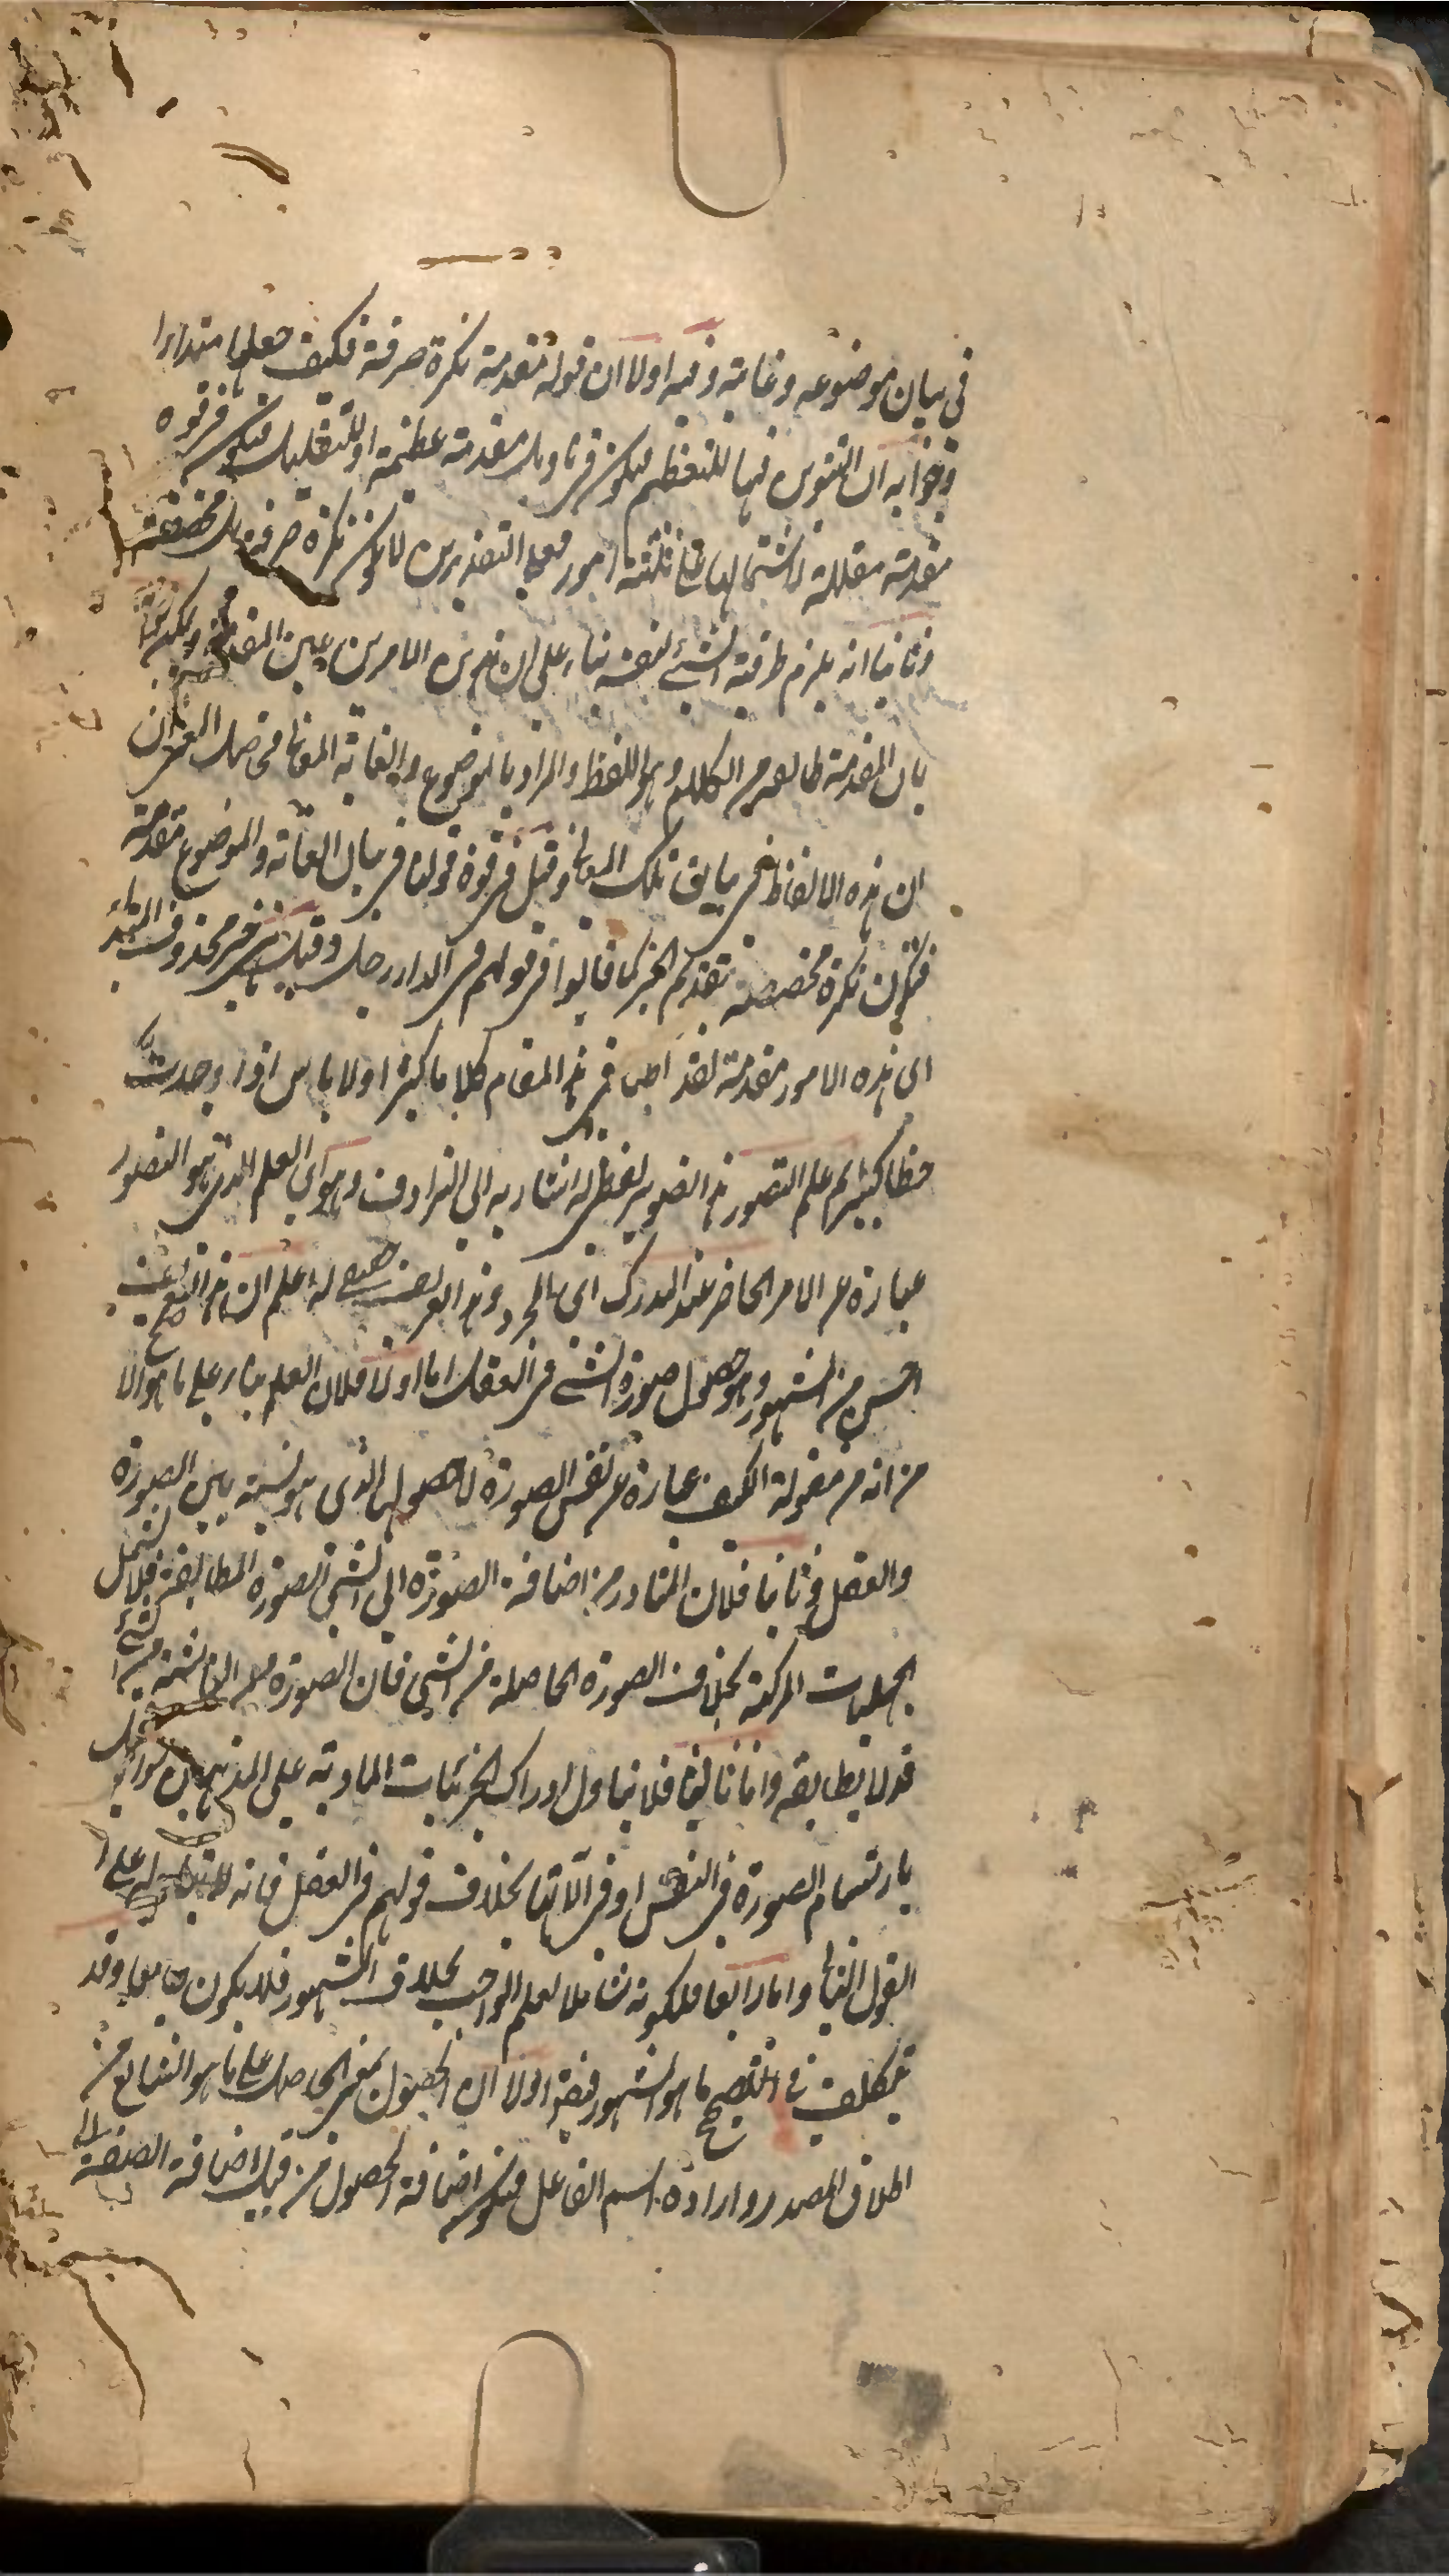 في بيان موضوعه وغايته وفيه اولا ان قوله مقدمة نكرة صرفة فكيف جعلها مبتداء
وجوابه ان التنوين فيها للتعظيم فيكون في تاويل مقدمة عظيمة او للتقليل فيكون في قوة
مقدمة مقللة لاشتمالها على ثلثة امور فعلى التقديرين لا يكون نكرة صرفة بل مخصصة
وثانيا انه يلزم ظرفية الشيء لنفسه بناء على ان هذين الامرين عين المقدمة ويمكن
بان المقدمة طايفة من الكلام وهو اللفظ والمراد بالموضوع والغاية المعاني فحاصل الغرض ان
ان هذه الالفاظ في بيان تلك المعاني وقيل في قوة قولنا في بيان الغاية والموضوع مقدمة
فتكون نكرة مخصصة بتقديم الخبر كما قالوا في قولهم في الدار رجل وقيل خبر محذوف المبتدأ
اى هذه الامور مقدمة لقد اطب في هذا المقام كلاما كثيرا ولا باس اذا وجدت
حظا كثيرا علم التصور هذا تصوير لفظي له اشار به الى الترادف وهو اى العلم الذي هو التصور
عبارة عن الامر الحاضر عند المدرك اى المجرد وهذا التعريف له اعلم ان هذا التعريف
احسن من المشهور وهو حصول صورة الشيء في العقل اما اولا فلان العلم بناء على ما هو الا
صح
من انه من مقولة الكيف عبارة عن نفس الصورة لا حصولها الذي هو نسبة بين الصورة
والعقل وثانيا فلان المتبادر من اضافة الصورة الى الشيء الصورة المطابقة فلا يشمل
الجهليات المركبة بخلاف الصورة الحاصلة من الشيء فان الصورة الناشئة من الشيء
قد لا يطابقه واما ثالثا فلا يتناول ادراك الجزئيات المادية على المذهبين سواء
بارتسام الصورة في النفس او في آلاتها بخلاف قولهم في العقل فانه على
القول الثاني واما رابعا فلكونه شاملا لعلم الواجب بخلاف المشهور فلا يكون جامعا وقد
يتكلف في تصحيح ما هو المشهور فيقر اولا ان الحصول بمعنى الحاصل على ما هو الشايع من
اطلاق المصدر وارادة اسم الفاعل فيكون اضافة الحصول من قبيل اضافة الصفة الى